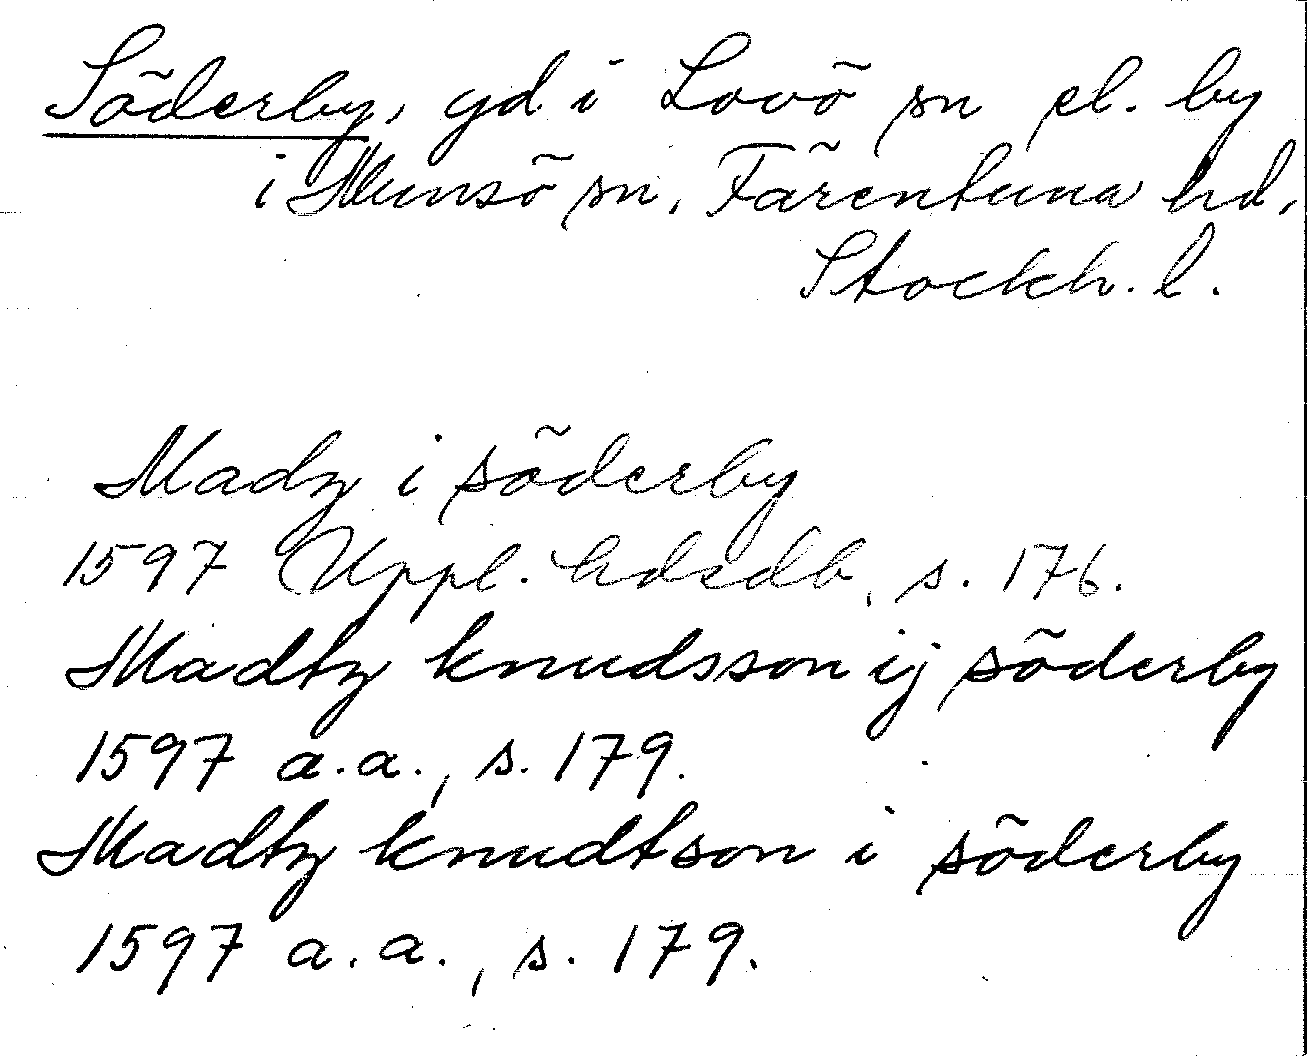 Söderby, gd i Lovö sn el. by
i Munsö sn, Färentuna hd,
Stockh. l.
Madz i söderby
1597 Uppl. hdsdb, s. 176.
Madtz knudsson ij söderby
1597 a.a., s. 179.
Madtz knudtson i söderby
1597 a.a., s. 179.